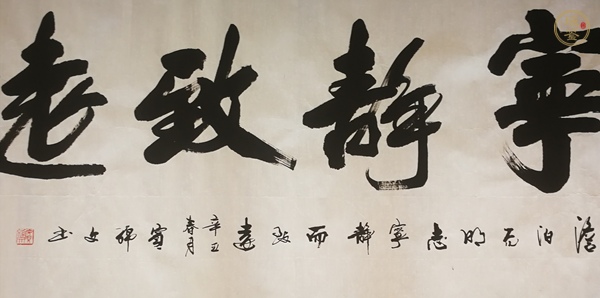 寧靜致遠
澹泊明志寧靜而致遠
辛丑
春月
文书